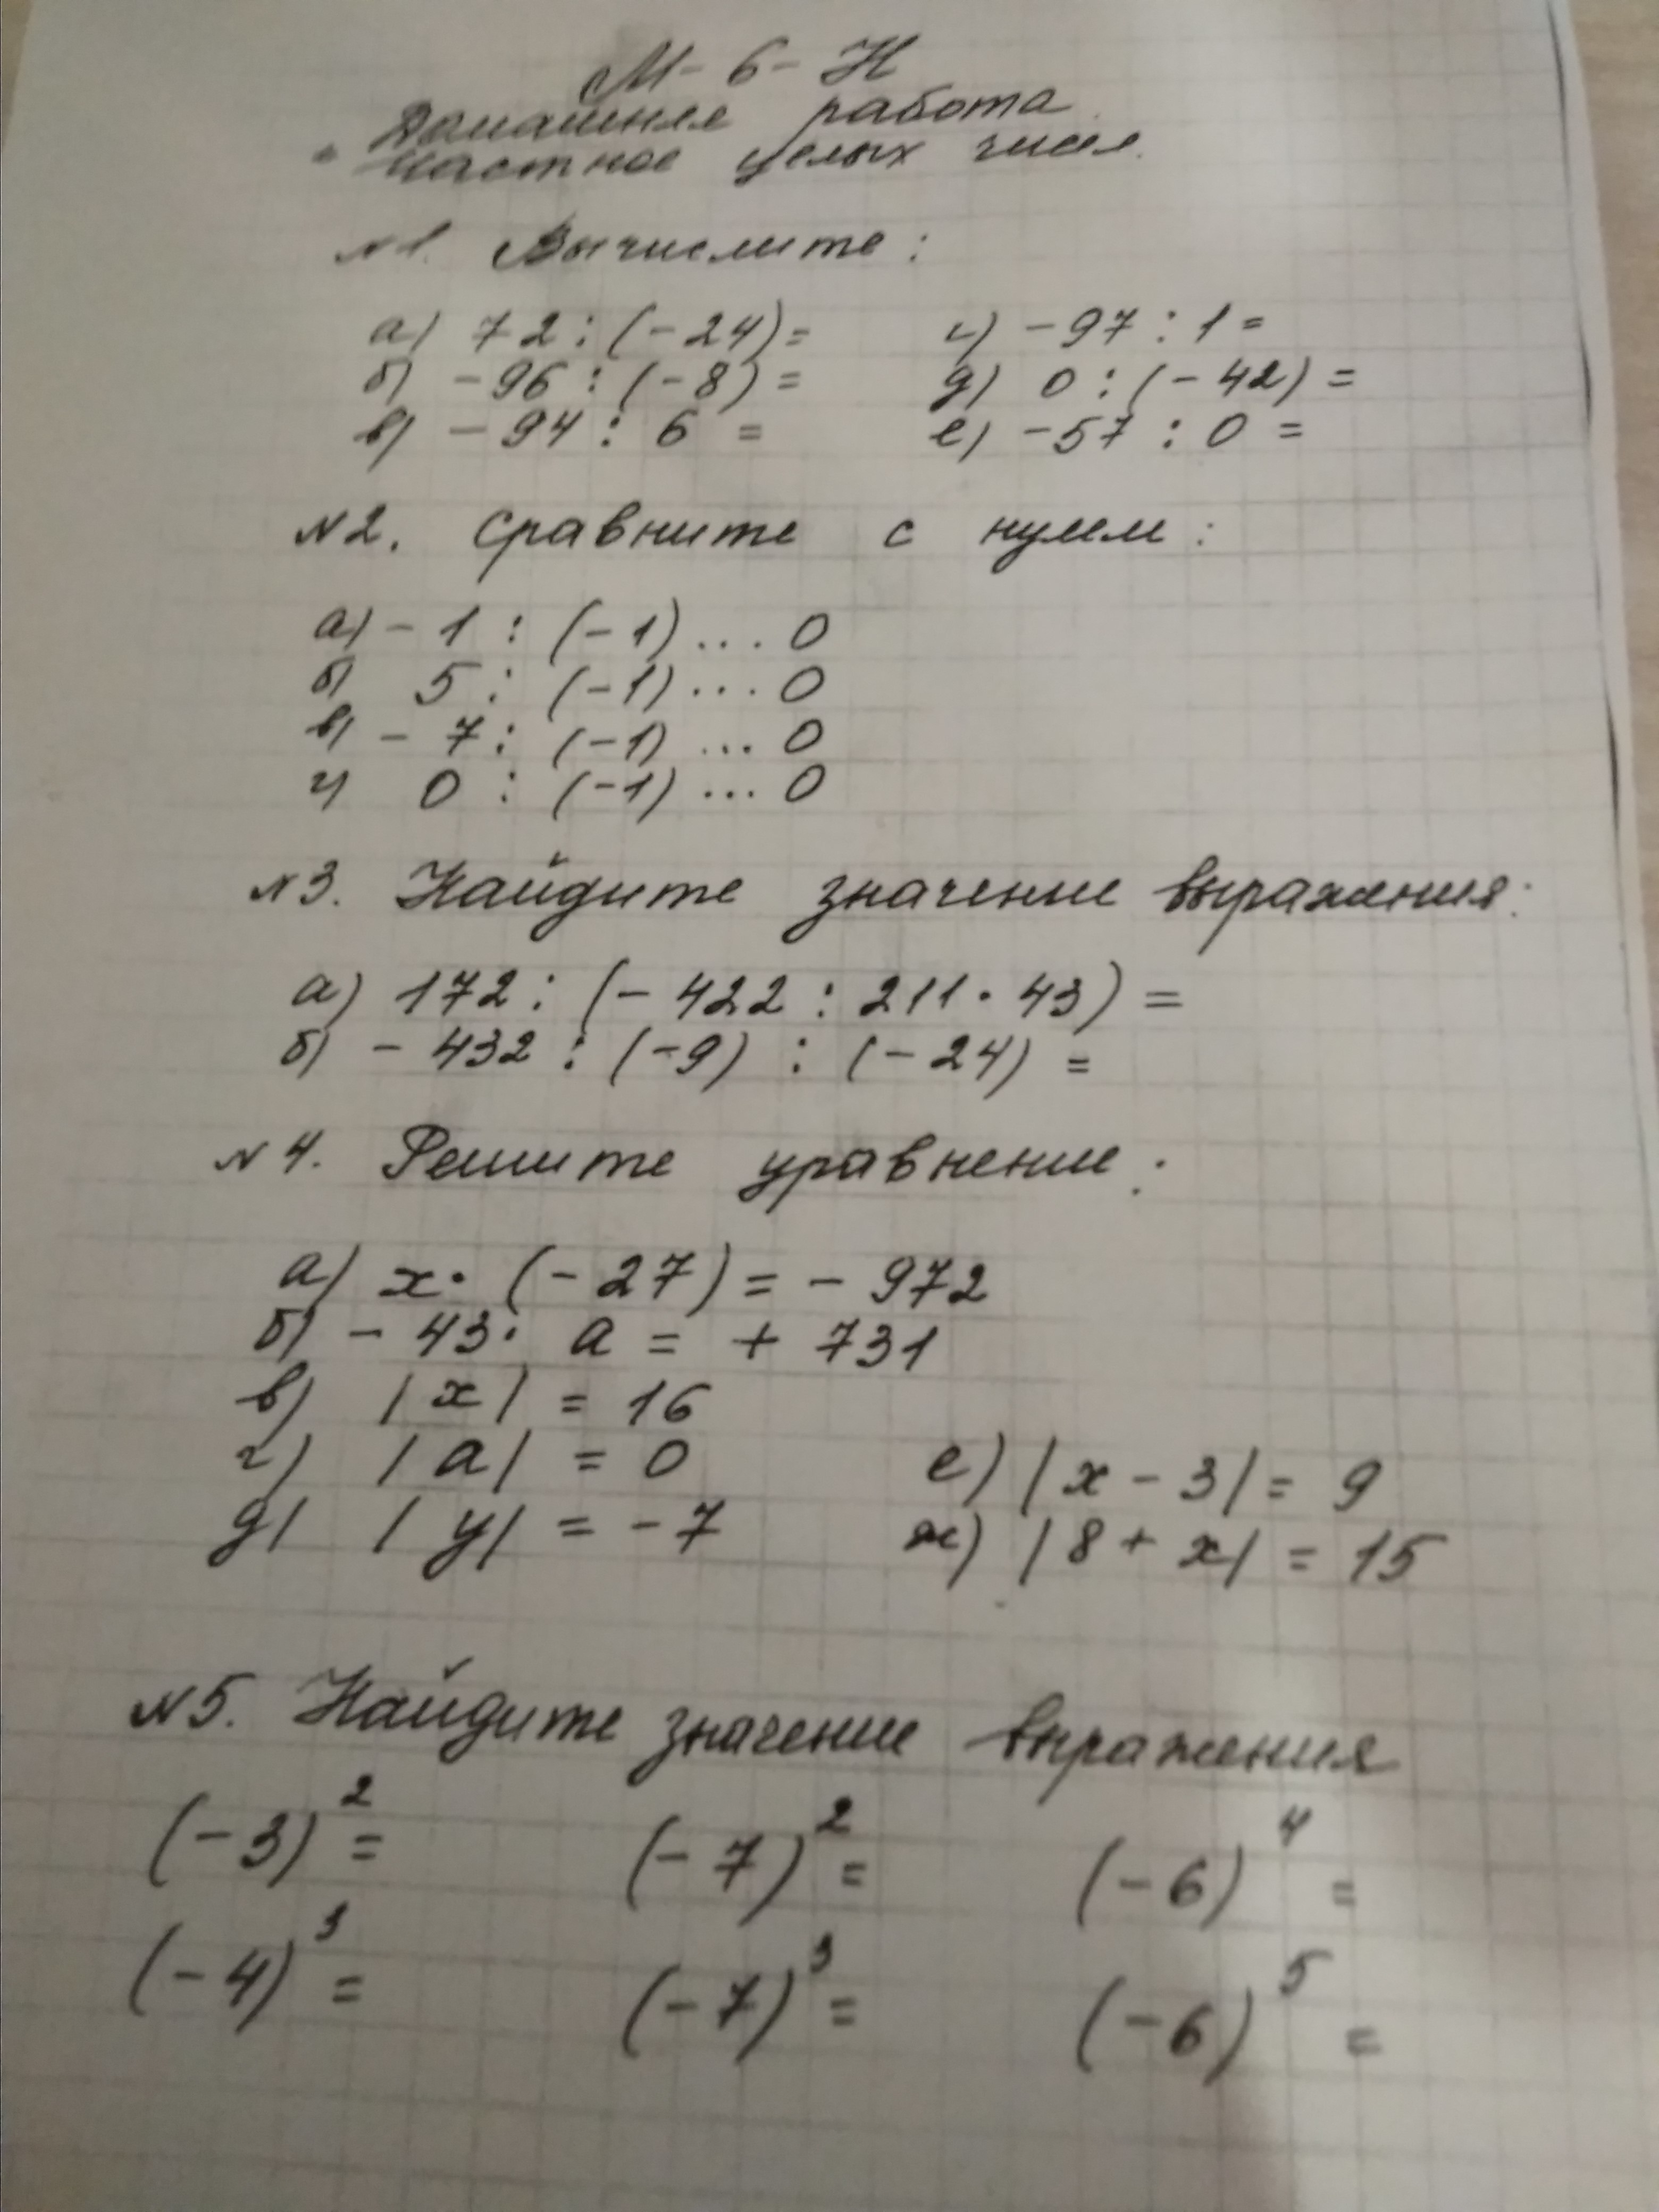 М-6-Н
Домашняя работа
Частное целых чисел.
№1. Вычислите:
а) 72 : (-24)= г) -97 : 1 =
б) -96 : (-8) = д) 0 : (-42) =
в) -94 : 6 = е) -57 : 0 =
№2. Сравните с нулем:
а) -1 : (-1) ... 0
б) 5 : (-1) ... 0
в) -7 : (-1) ... 0
г) 0 : (-1) ... 0
№3. Найдите значение выражения:
а) 172 : (-422 : 211 · 43) =
б) -432 : (-9) : (-24) =
№4. Решите уравнение:
а) x · (-27) = -972
б) -43 · a = +731
в) |x| = 16
г) |a| = 0 е) |x - 3| = 9
д) |y| = -7 ж) |8 + x| = 15
№5. Найдите значение выражения
(-3)² = (-7)² = (-6)⁴ =
(-4)³ = (-7)³ = (-6)⁵ =